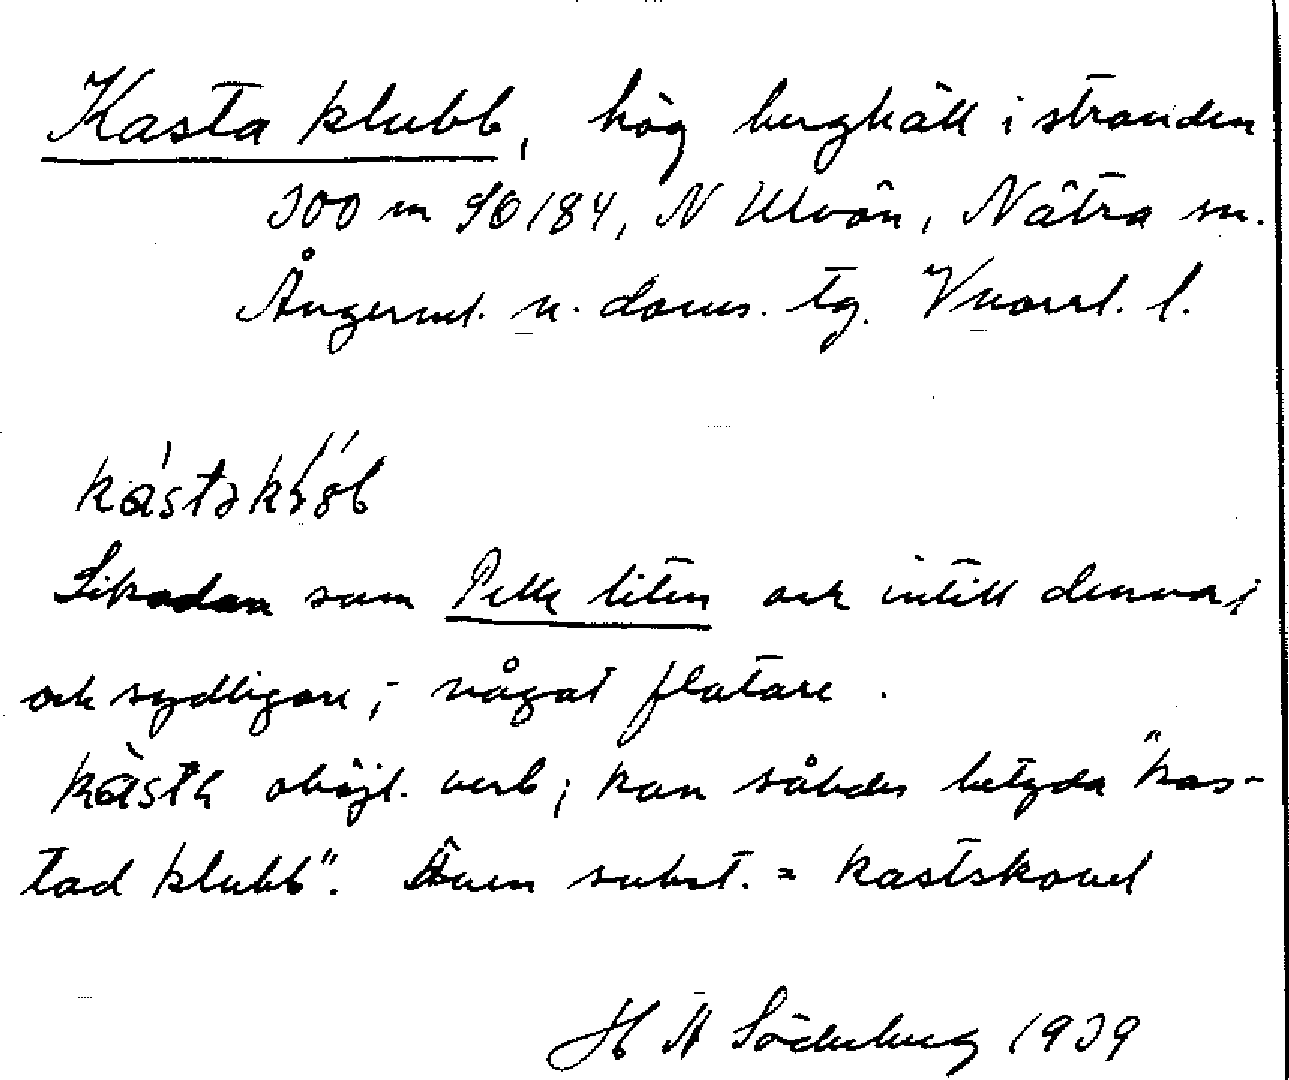 Kasta klubb, hög berghäll i stranden
300 m SO 184, N Ulvön, Nätra sn.
Ångerml. n. doms. tg. Vnorrl. l.
Sikadan som Pelle liten och intill denna;
och sydligare; något flatare.
kàsta oböjl. verb; kan således betyda "kas-
tad klubb". Även subst. = kastskovel
H A Söderberg 1939